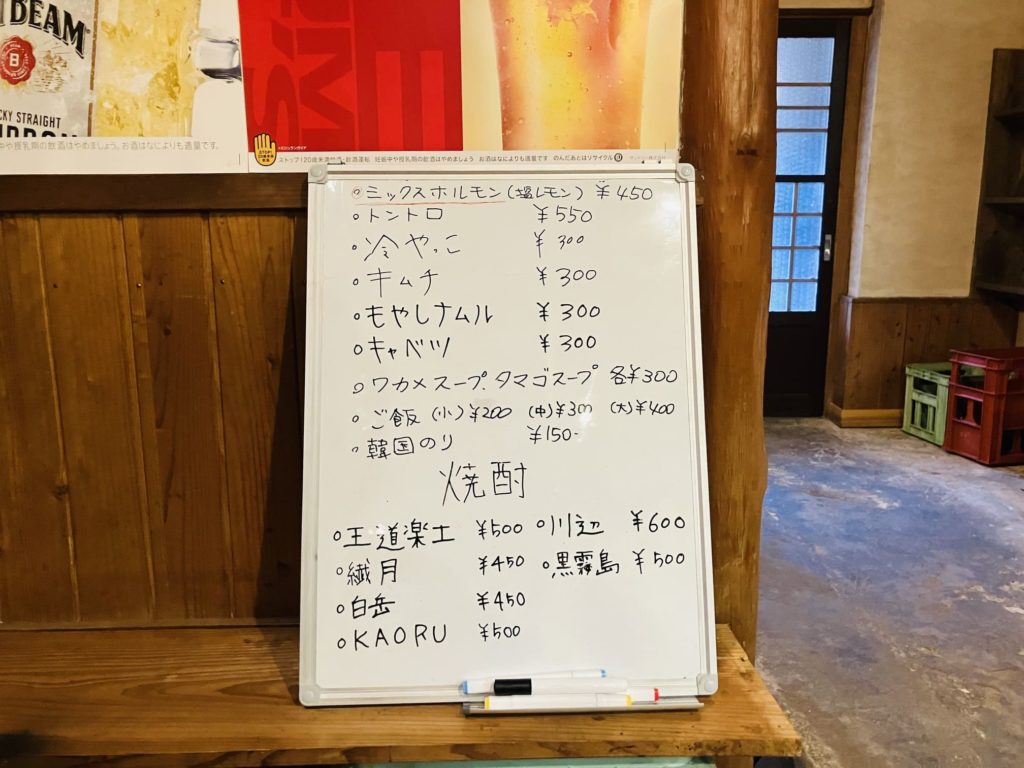 BEAM
B
CKY STRAIGHT
中や授乳期の飲酒はやめましょう。お酒はなによりも適量です。
ストップ!20歳未満飲酒・飲酒運転 妊娠中や授乳期の飲酒はやめましょう お酒はなによりも適量です のんだあとはリサイクル
◦ミックスホルモン(塩レモン) ¥450
◦トントロ ¥550
◦冷やっこ ¥300
◦キムチ ¥300
◦もやしナムル ¥300
◦キャベツ ¥300
◦ワカメスープ.タマゴスープ 各¥300
◦ご飯 (小)¥200 (中)¥300 (大)¥400
◦韓国のり ¥150-
焼酎
◦王道楽土 ¥500 ◦川辺 ¥600
◦繊月 ¥450 ◦黒霧島 ¥500
◦白岳 ¥450
◦KAORU ¥500